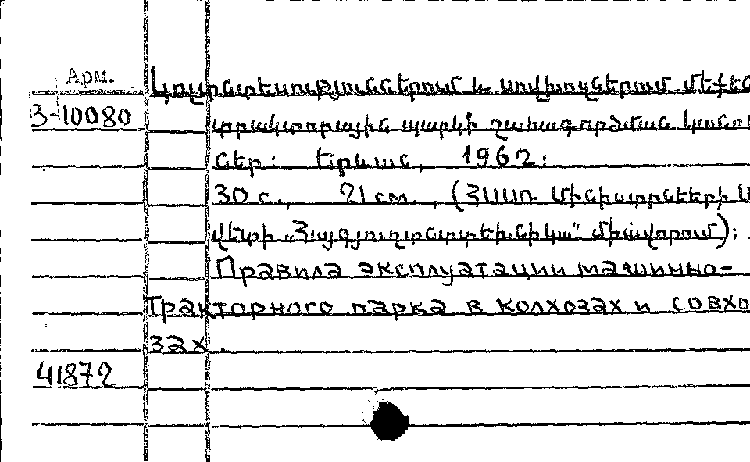 Арм.
Կոլտնտեսություններում և սովխոզներում մեքեն
3-10080
տրակտորային պարկի շահագործման կանո
ներ: Երևան, 1962:
30 с., 21 см., (ՀՍՍՌ Մինիստրների Ս
վետի „Հայգյուղտնտտեխնիկա" միավորում):
Правила эксплуатации машинно-
Тракторного парка в колхозах и совхо
зах.
41872